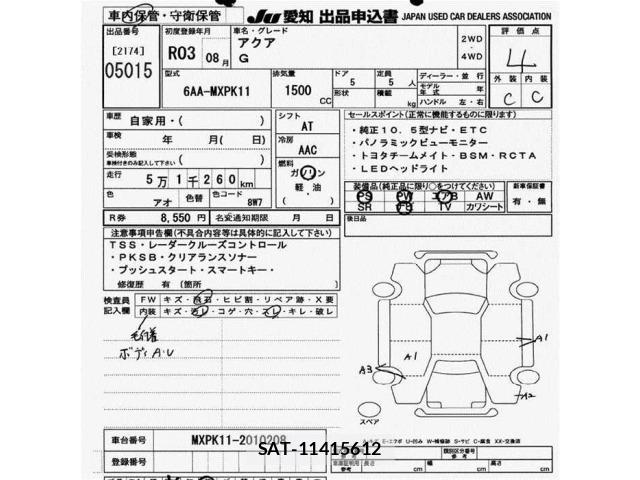 車内保管・守衛保管
JU 愛知 出品申込書 JAPAN USED CAR DEALERS ASSOCIATION
出品番号
[2174]
05015
初度登録年月
R03 08月
車名・グレード
アクア
G
2WD
・
4WD
評価点
4
外装 内装
C C
型式
6AA-MXPK11
排気量
1500
CC
ドア
5
定員
5 人
形状
積載
kg
ディーラー・並行
モデル年式 年
ハンドル 左・右
車歴
自家用・( )
車検
年 月( 日)
受検形態
( )
走行
5万1千260km
色
アオ
色替
色コード
8W7
シフト
AT
冷房
AAC
燃料
ガソリン
軽・油
( )
R券 8,550円 名変通知期限 月 日
セールスポイント(正常に機能するものに限ります)
・純正10.5型ナビ・ETC
・パノラミックビューモニター
・トヨタチームメイト・BSM・RCTA
・LEDヘッドライト
装備品(純正品に限り○をつけてください)
PS PW エアB AW
SR ナビ TV カワシート
新車保証書
有・無
後日品
注意事項申告欄(不具合内容等は具体的に記入して下さい)
TSS・レーダークルーズコントロール
・PKSB・クリアランスソナー
・プッシュスタート・スマートキー・
修復歴 有〔箇所 〕
検査員
記入欄
FW キズ・飛石・ヒビ割・リペア跡・X要
内装 キズ・汚レ・コゲ・穴・スレ・キレ・破レ
ボディA・U
A1
A1
A3
A2
スペア
A-キズ E-エクボ U-凹み W-補修跡 S-サビ C-腐食 XX-交換済
車台番号
MXPK11-2010208
登録番号
SAT-11415612
類別区分番号
参考
長さ cm 幅 cm 高さ cm